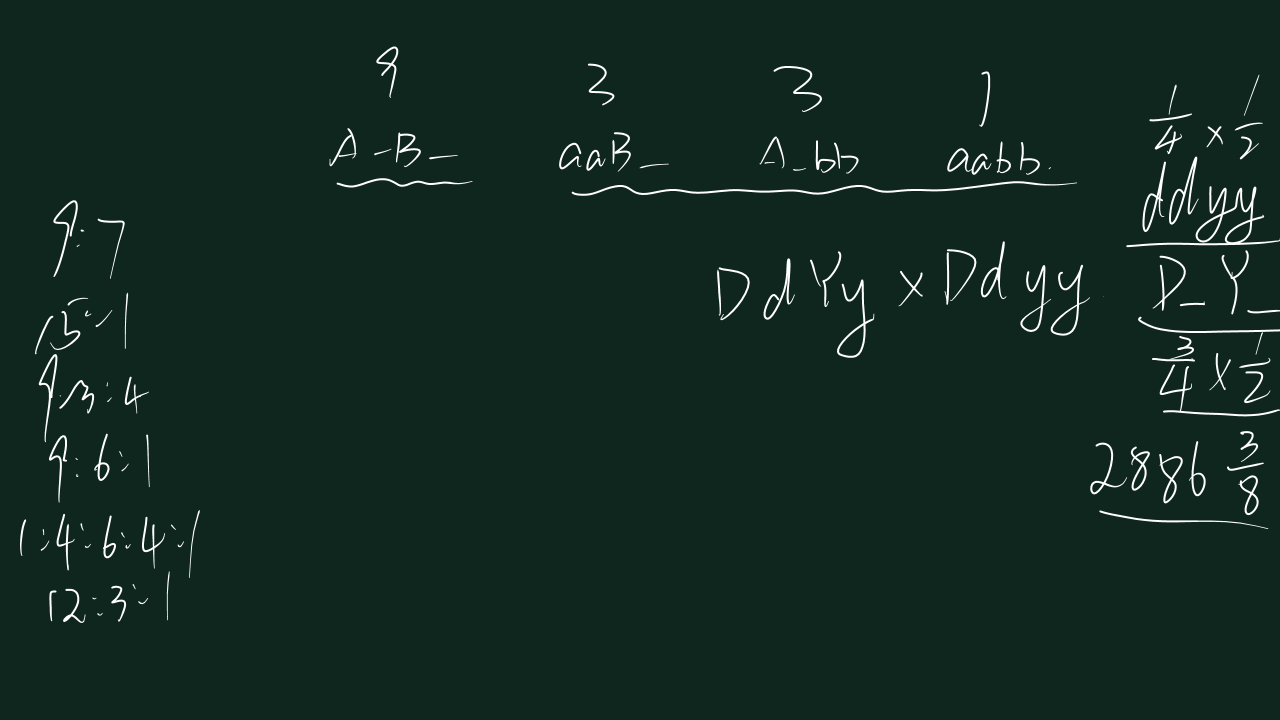 9 3 3 1
A_B_ aaB_ A_bb aabb.
9:7
15:1
9:3:4
9:6:1
1:4:6:4:1
12:3:1
DdYy × Ddyy
1/4 × 1/2
ddyy
D_Y_
3/4 × 1/2
2886 3/8